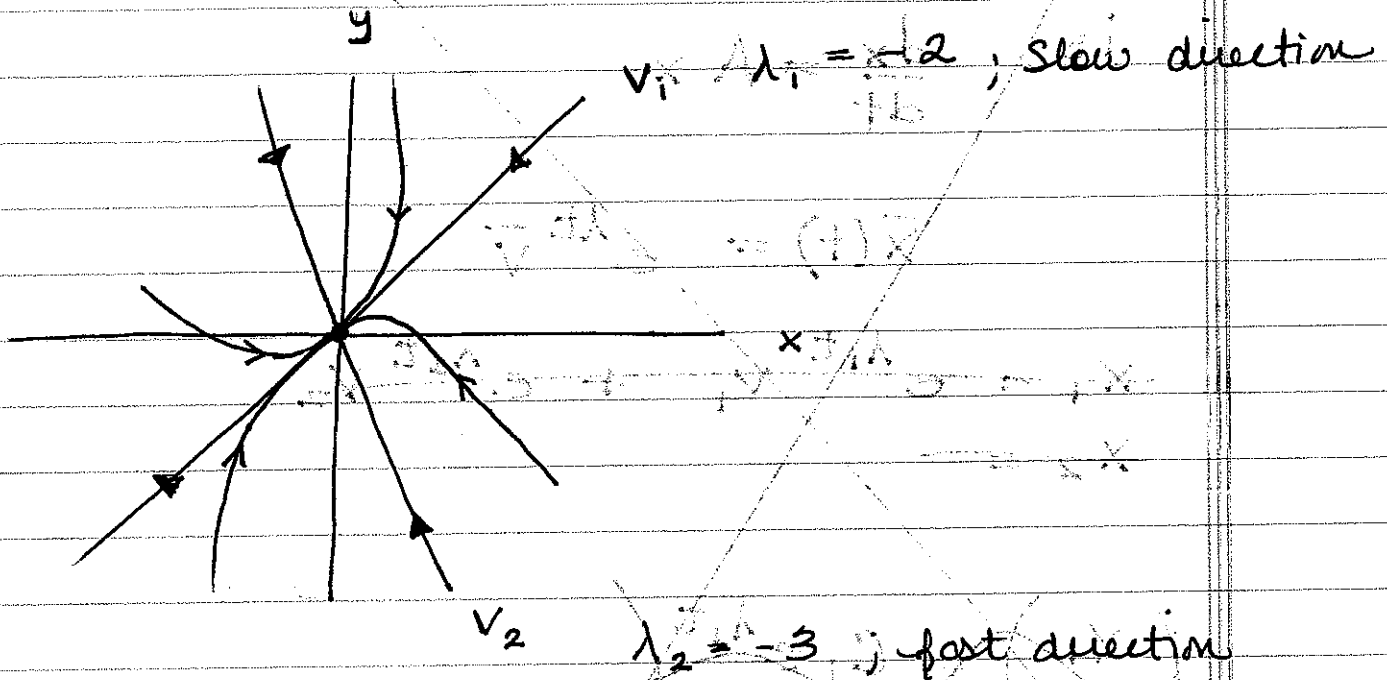 y
V₁ λ₁ = -2 ; Slow direction
x
V₂
λ₂ = -3 ; fast direction